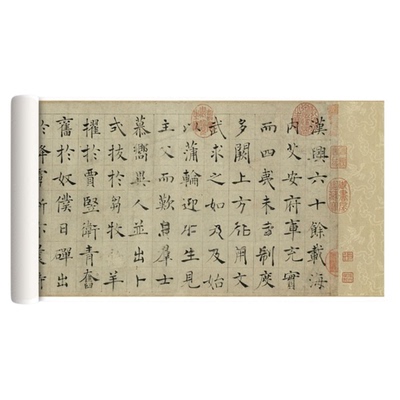 漢興六十餘載海
內艾安府庫充實
而四夷未賓制度
多闕上方欲用文
武求之如弗及始
以蒲輪迎枚生見
主父而歎息群士
慕嚮異人並出卜
式拔於芻牧弘羊
擢於賈豎衛青奮
舊於奴僕日磾出
於降虜斯亦